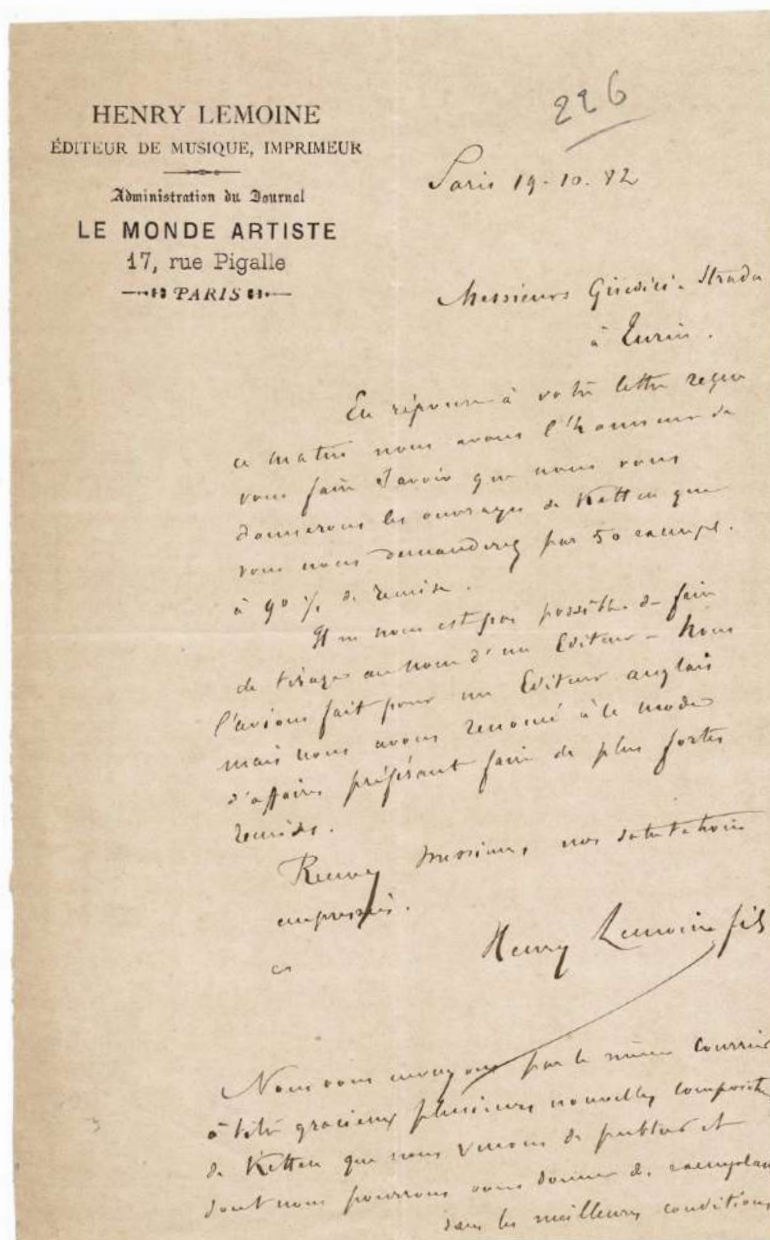 HENRY LEMOINE
ÉDITEUR DE MUSIQUE, IMPRIMEUR
Administration du Journal
LE MONDE ARTISTE
17, rue Pigalle
PARIS
226
Paris 19-10-82
Messieurs Giudici & Strada
à Turin.
En réponse à votre lettre reçue
ce matin nous avons l'honneur de
vous faire savoir que nous vous
donnerons les ouvrages de Ketten que
vous nous demanderez par 50 exempl.
à 90 % de remise.
Il ne nous est pas possible de faire
de tirages au nom d'un Editeur - Nous
l'avions fait pour un Editeur anglais
mais nous avons renoncé à ce mode
d'affaires préférant faire de plus fortes
remises.
Recevez Messieurs, nos salutations
empressées.
Henry Lemoine fils
Nous vous envoyons par le même courrier
à titre gracieux plusieurs nouvelles composit
de Ketten que nous venons de publier et
dont nous pourrons vous donner des exemplai
dans les meilleures conditions